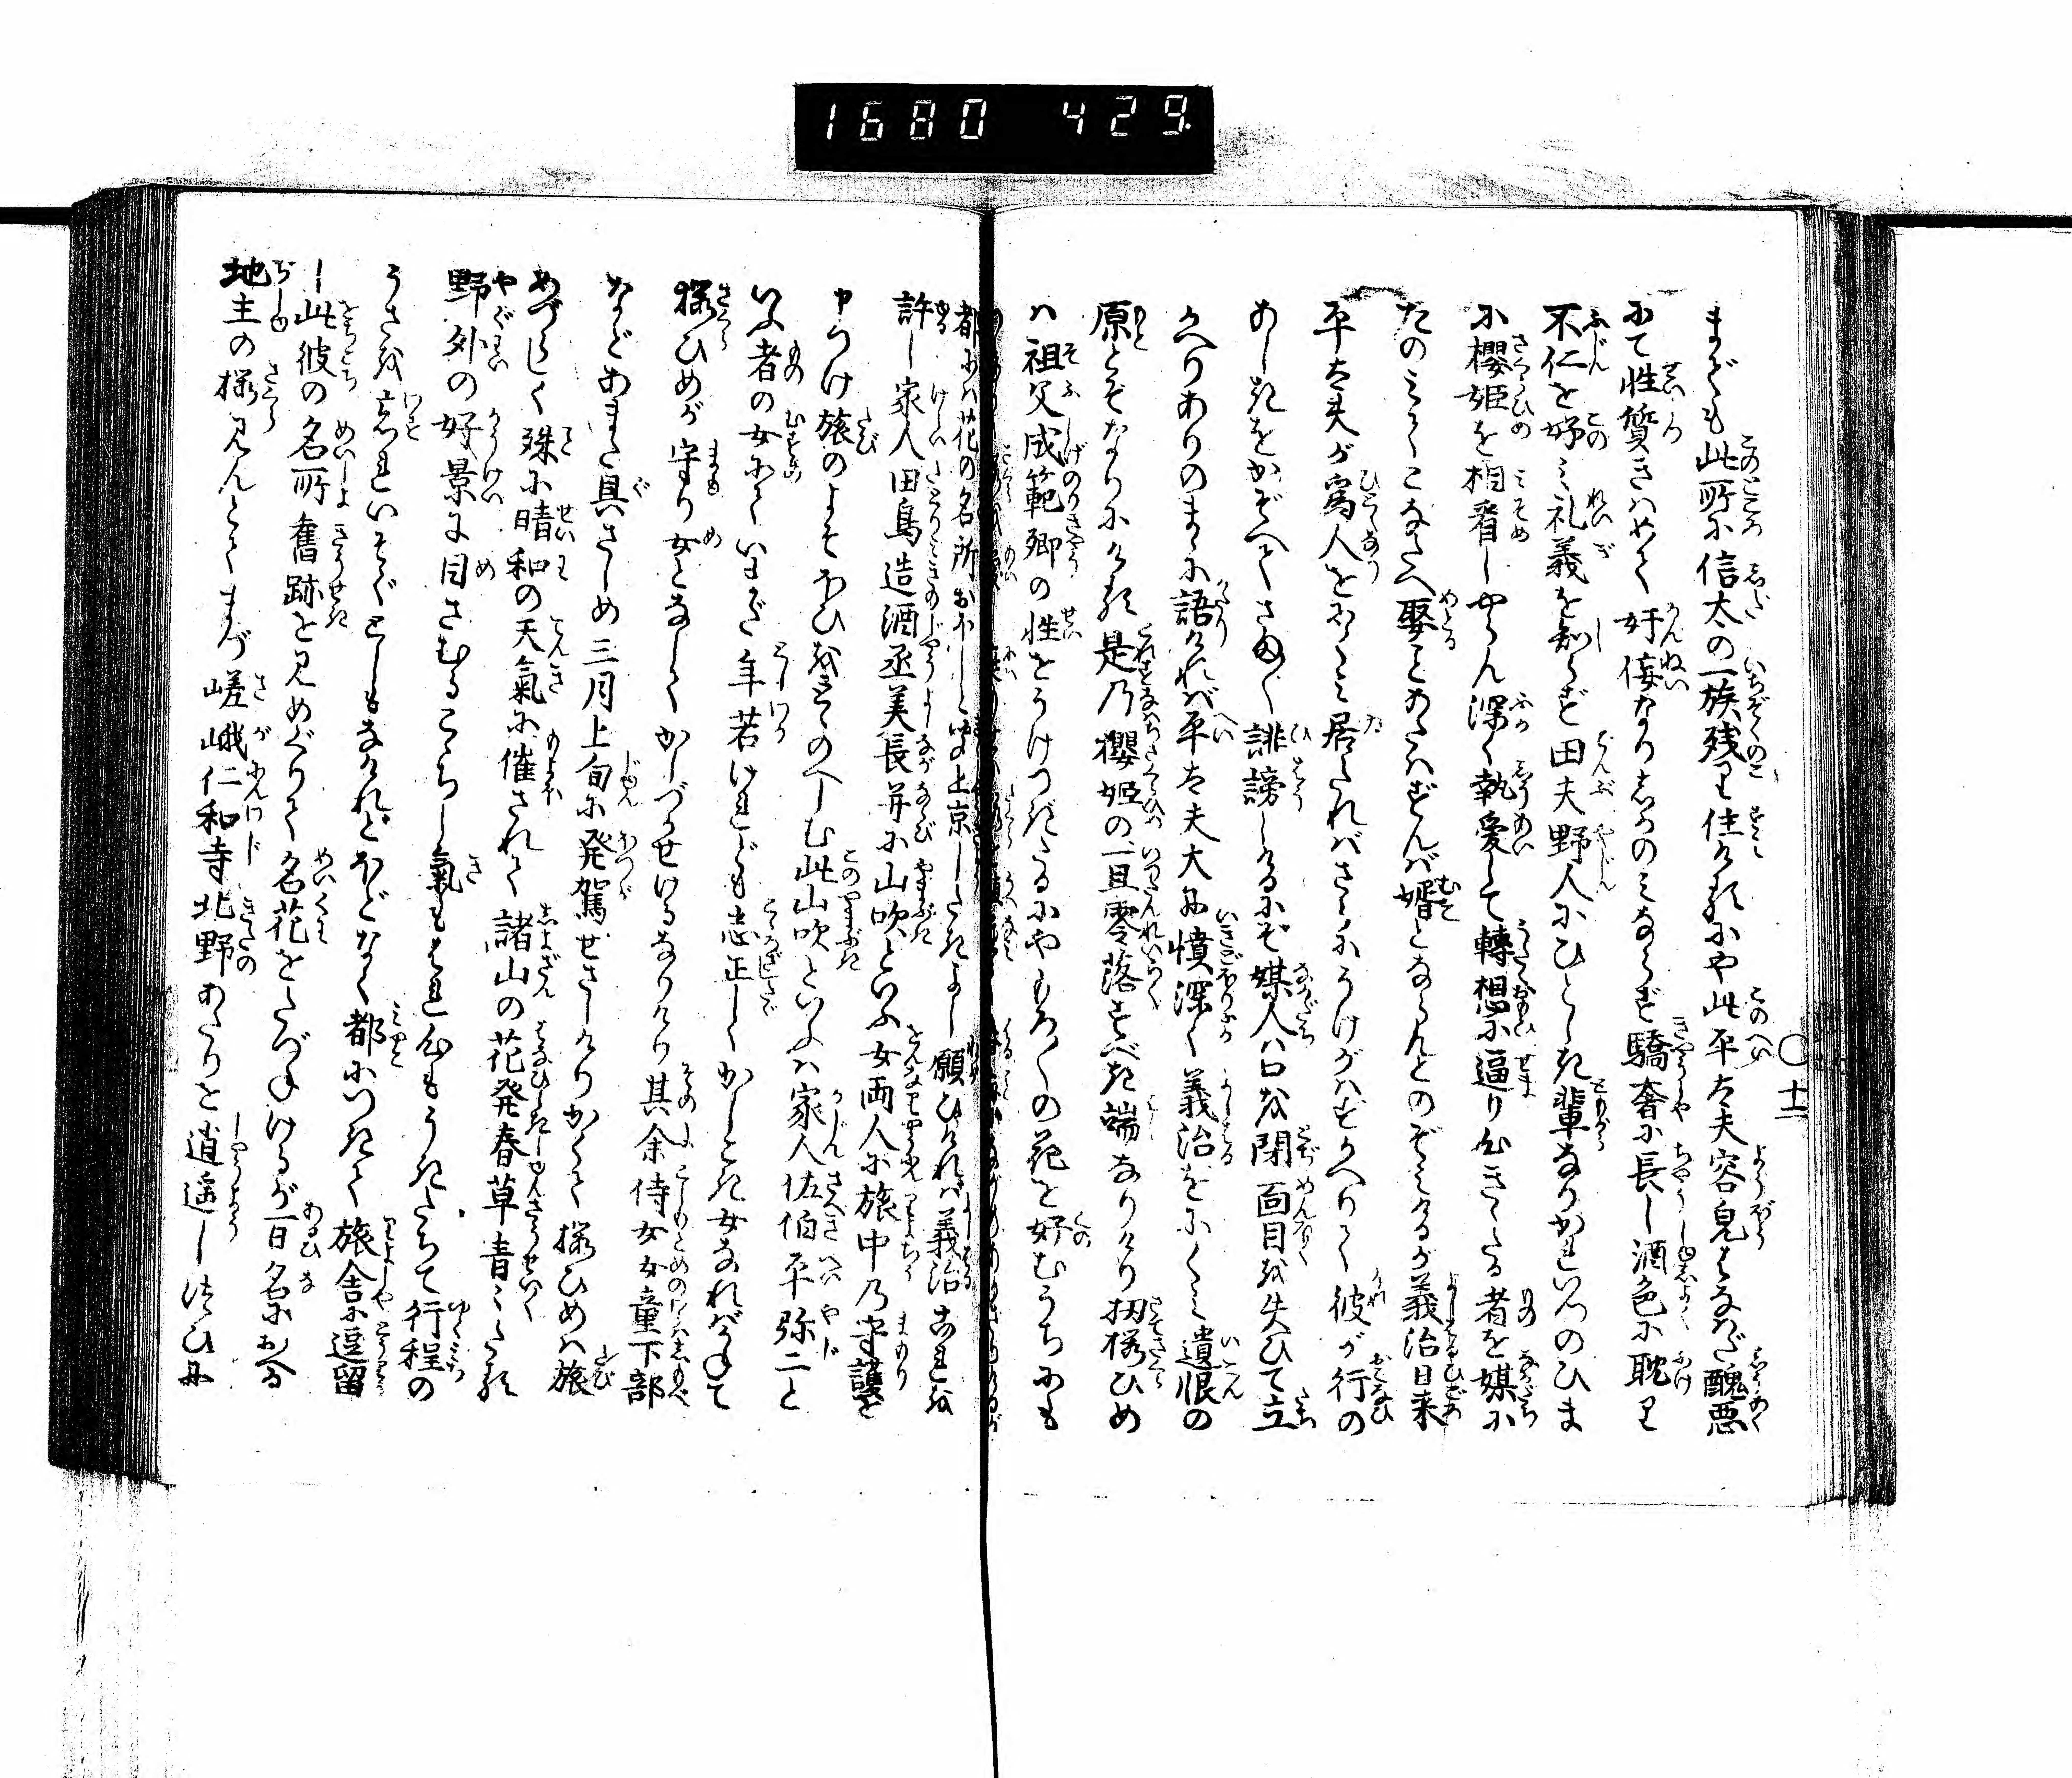 1680 429.
〇十一
まぐも此所に信太の一族残り住けるにや此平太夫容皃はなはだ醜悪
にて性質きはめて奸侫なりしかのみならず驕奢に長し酒色に耽り
不仁を好み礼義を知らず田夫野人にひとしき輩なりかれいつのひま
に櫻姫を相看しやらん深く執愛して轉想に逼り出きたる者を媒に
たのみてこなたへ娶とあらずんば婿とならんとのぞみけるが義治日来
平太夫が為人をにくみ居たればさらにうけがはずかへりて彼が行の
あしきをかぞへてさま〲誹謗しけるにぞ媒人ハ口を閉面目を失ひて立
かへりありのまゝに語ければ平太夫大に憤深く義治をにくみ遺恨の
原とぞなりにける是乃櫻姫の一旦零落すべき端なりけり扨桜ひめ
ハ祖父成範卿の性をうけつぎたるにやもろ〱の花を好むうちにも
都にハ花の名所おほしと
上京したきよし願ひければ義治これを
許し家人田鳥造酒丞美長并に山吹といふ女両人に旅中乃守護を
申つけ旅のよそほひをとゝのへしむ此山吹といふハ家人佐伯平弥二と
いふ者の女にていまだ年若けれども志正しくかしこき女なればかねて
桜ひめが守り女となしてかしづかせけるなりけり其余侍女女童下部
などあまた具さしめ三月上旬に発駕せさしけりかくて桜ひめハ旅
めづらしく殊に晴和の天氣に催されて諸山の花発春草青〻たる
野外の好景に目さむるこゝちし氣もはれ心もうきたちて行程の
うさを忘れいそぐとしもなけれどほどなく都につきて旅舎に逗留
し此彼の名所奮跡を見めぐりて名花をたづねけるが一日名にお合る
地主の桜見んとてまづ嵯峨仁和寺北野あたりを逍遥しつひに